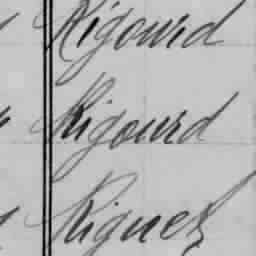 Rigourd
Rigourd
Riguet